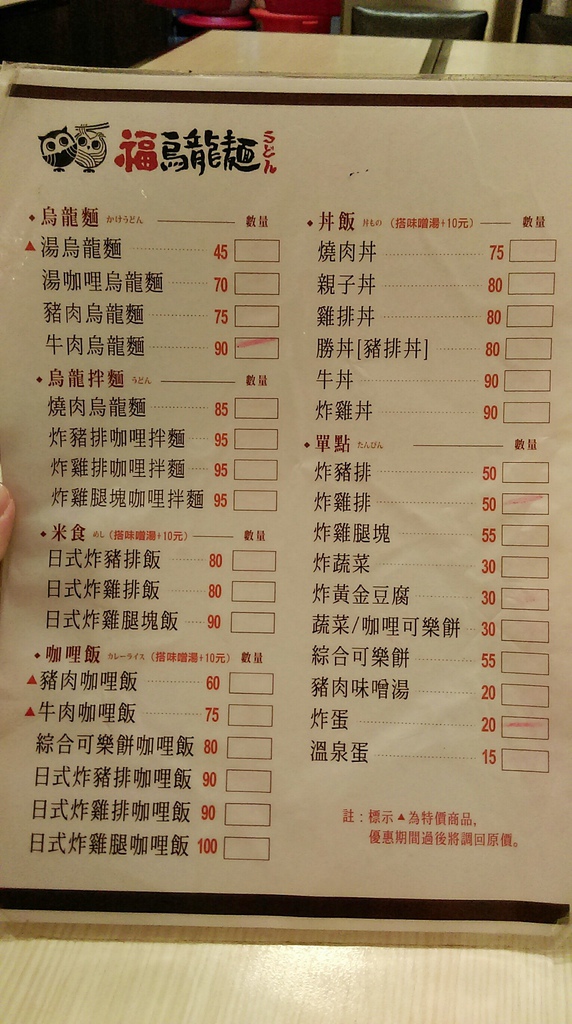 福烏龍麵 うどん
◆ 烏龍麵 かけうどん 數量
▲湯烏龍麵 45
湯咖哩烏龍麵 70
豬肉烏龍麵 75
牛肉烏龍麵 90
◆ 烏龍拌麵 うどん 數量
燒肉烏龍麵 85
炸豬排咖哩拌麵 95
炸雞排咖哩拌麵 95
炸雞腿塊咖哩拌麵 95
◆ 米食 めし (搭味噌湯+10元) 數量
日式炸豬排飯 80
日式炸雞排飯 80
日式炸雞腿塊飯 90
◆ 咖哩飯 カレーライス (搭味噌湯+10元) 數量
▲豬肉咖哩飯 60
▲牛肉咖哩飯 75
綜合可樂餅咖哩飯 80
日式炸豬排咖哩飯 90
日式炸雞排咖哩飯 90
日式炸雞腿咖哩飯 100
◆ 丼飯 丼もの (搭味噌湯+10元) 數量
燒肉丼 75
親子丼 80
雞排丼 80
勝丼[豬排丼] 80
牛丼 90
炸雞丼 90
◆ 單點 たんぴん 數量
炸豬排 50
炸雞排 50
炸雞腿塊 55
炸蔬菜 30
炸黃金豆腐 30
蔬菜/咖哩可樂餅 30
綜合可樂餅 55
豬肉味噌湯 20
炸蛋 20
溫泉蛋 15
註：標示▲為特價商品，
優惠期間過後將調回原價。